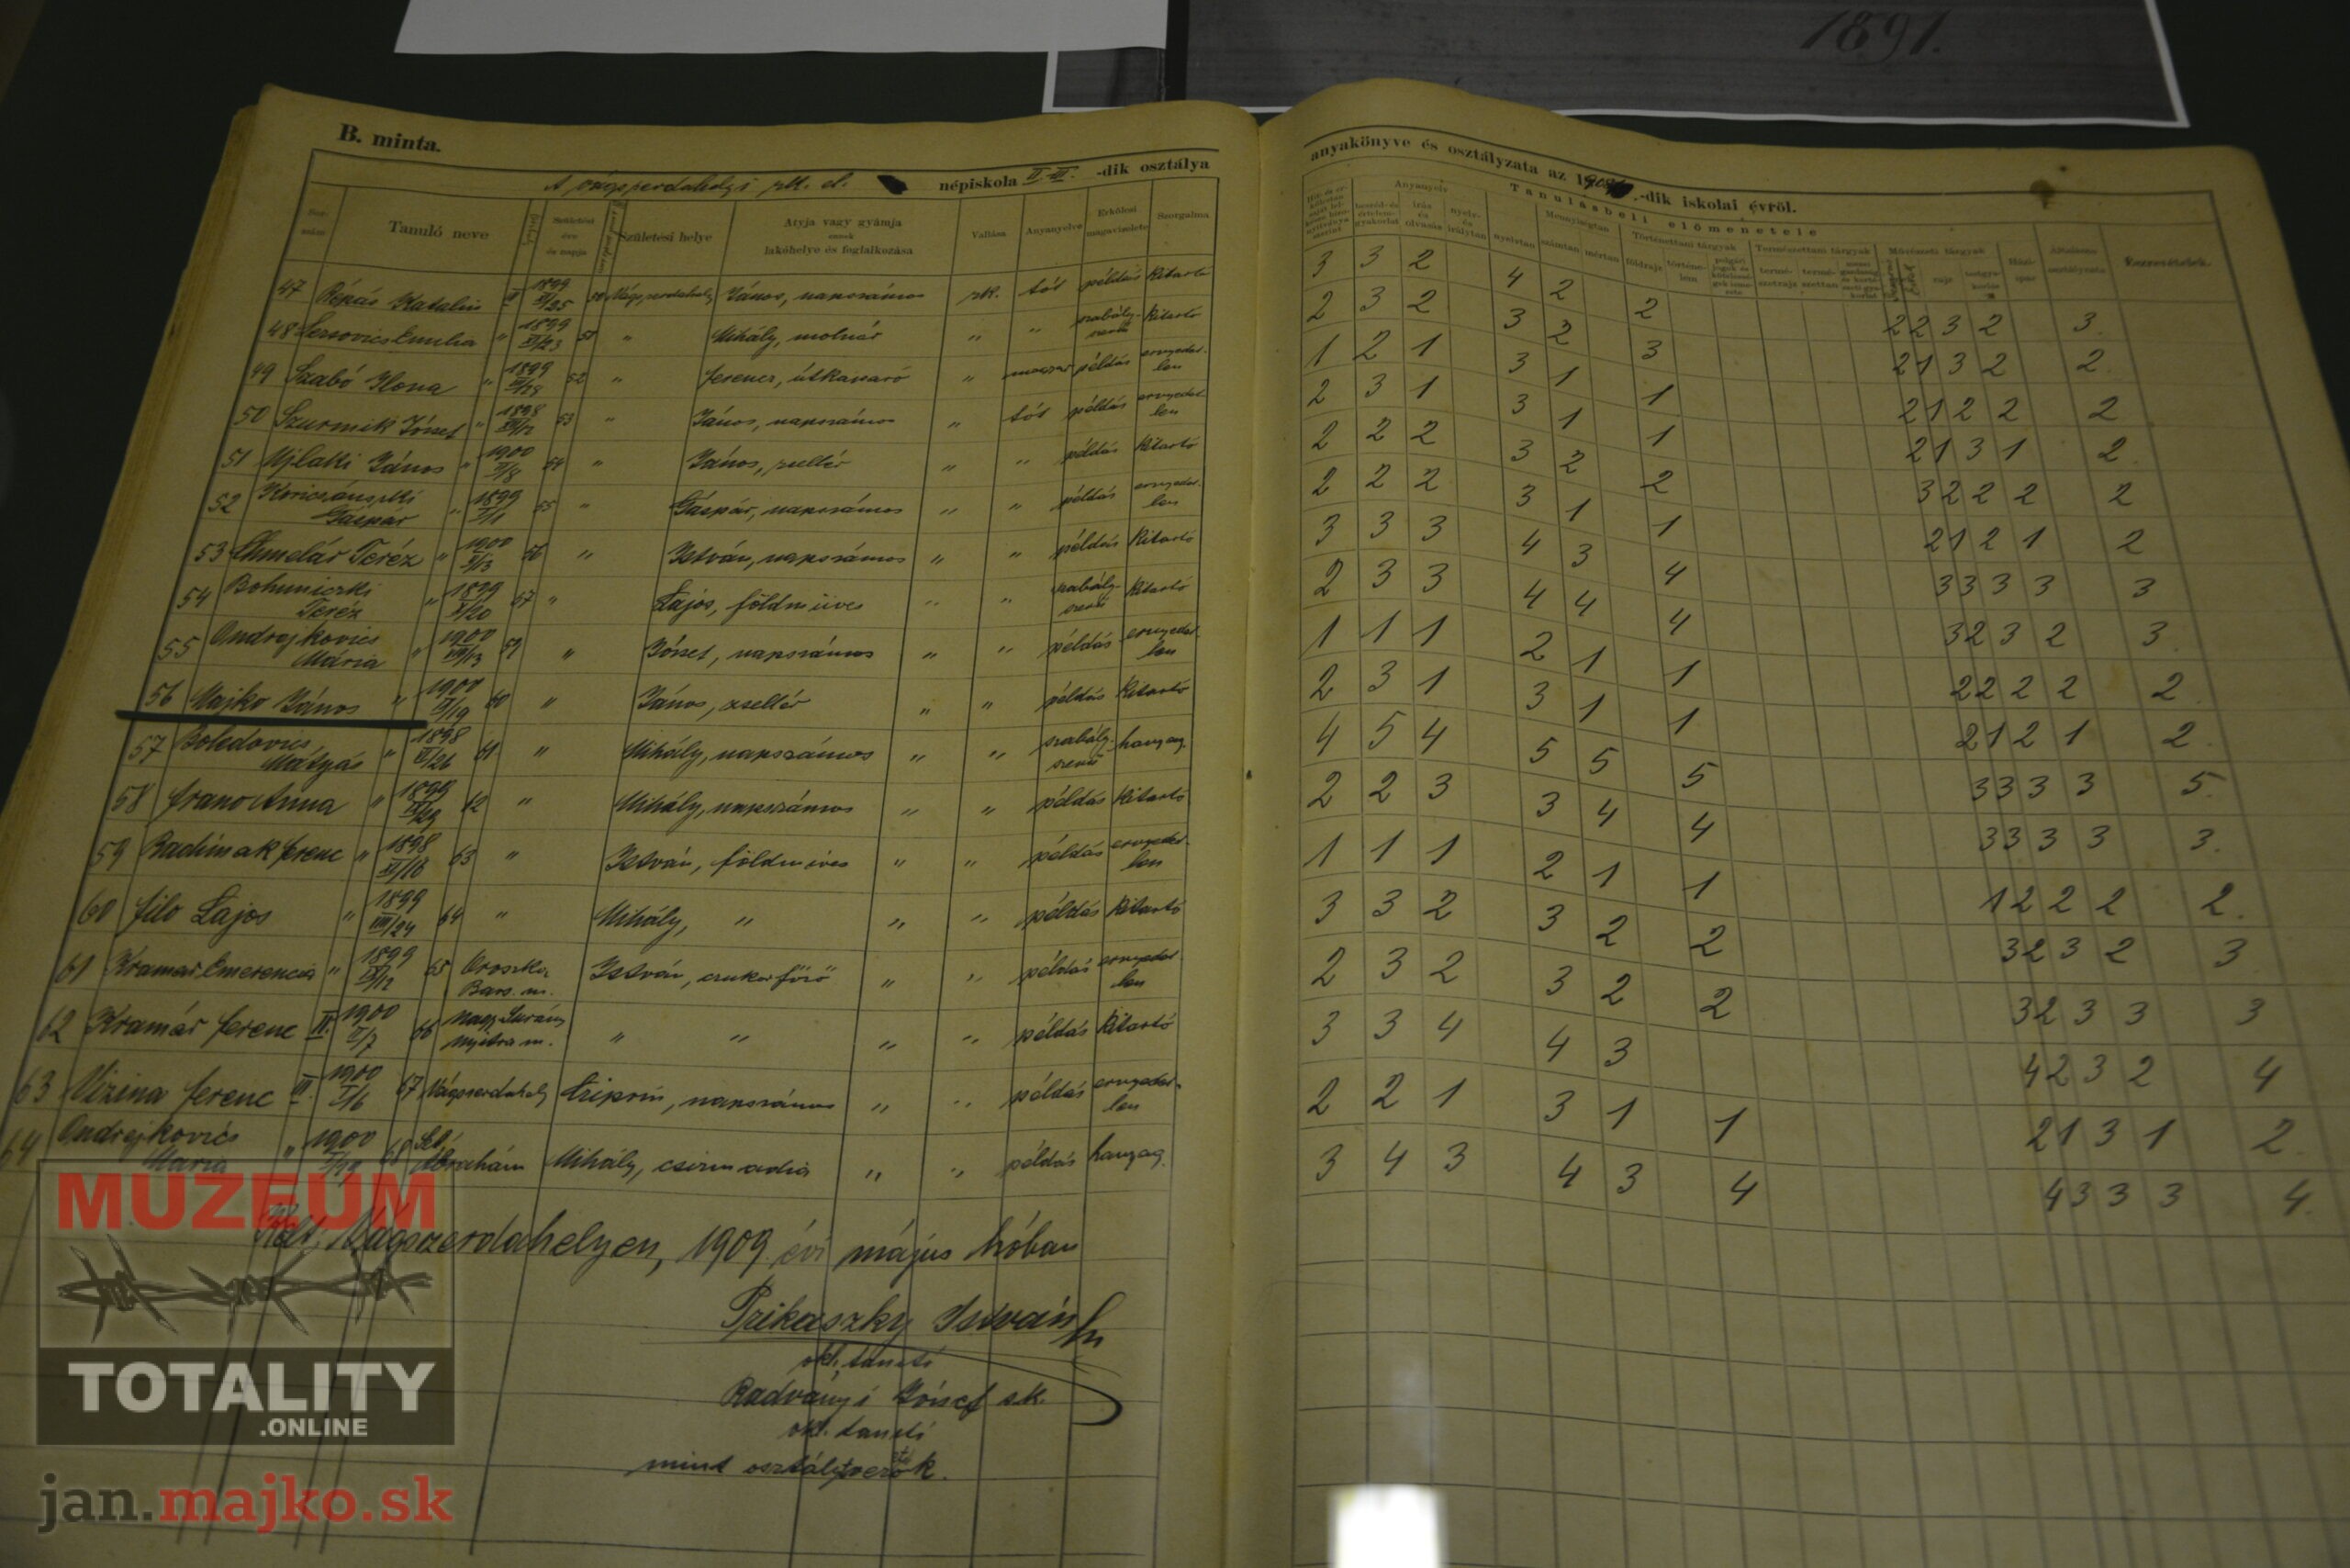 1891.
B. minta.
népiskola II-III. -dik osztálya
anyakönyve és osztályzata az 19 -dik iskolai évről.
Tanulásbeli előmenetele
Tanuló neve
Születési helye
Atyja vagy gyámja
lakóhelye és foglalkozása
Vallása
Anyanyelve
Erkölcsi
Szorgalma
Anyanyelv
Történettani tárgyak
Természettani tárgyak
47 Répás Katalin 1899 50 Vágszerdahely János, napszámos rk. tót példás kitartó 3 3 2 4 2 2 2 2 3 2 3
48 Emilia " 1899 51 " Mihály, molnár " " kitartó 2 3 2 3 2 3 2 1 3 2 2
49 Szabó Ilona " 1899 52 " Ferencz, útkaparó " magyar példás ernyedet-
len 1 2 1 3 1 1 2 1 2 2 2
50 Szurmik József " 1898 53 " János, napszámos " tót példás ernyedet-
len 2 3 1 3 1 1 2 1 3 1 2
51 Ujlaki János " 1900 54 " János, zsellér " " példás kitartó 2 2 2 3 2 2 3 2 2 2 2
52 Gáspár " 1899 55 " Gáspár, napszámos " " példás ernyedet-
len 2 2 2 3 1 1 2 1 2 1 2
53 Chmelár Teréz " 1900 56 " István, napszámos " " példás kitartó 3 3 3 4 3 4 3 3 3 3 3
54 Bohuniczki
Teréz " 1899 57 " Lajos, földmüves " " szabály-
szerű kitartó 2 3 3 4 4 4 3 2 3 2 3
55 Andrejkovics
Mária " 1900 59 " József, napszámos " " példás ernyedet-
len 1 1 1 2 1 1 2 2 2 2 2
56 Majko János " 1900 60 " János, zsellér " " példás kitartó 2 3 1 3 1 1 2 1 2 1 2
57 Boledovics
Mátyás " 1898 61 " Mihály, napszámos " " szabály-
szerű hanyag 4 5 4 5 5 5 3 3 3 3 5
58 Frano Anna " 1899 62 " Mihály, napszámos " " példás kitartó 2 2 3 3 4 4 3 3 3 3 3
59 Radimak Ferenc " 1898 63 " István, földmüves " " példás ernyedet-
len 1 1 1 2 1 1 1 2 2 2 2
60 Filo Lajos " 1899 64 " Mihály, " " " példás kitartó 3 3 2 3 2 2 3 2 3 2 3
61 Kramar Emerencia " 1899 65 Oroszka
Bars. m. István, cukorfőző " " példás ernyedet-
len 2 3 2 3 2 2 3 2 3 3 3
62 Kramár Ferenc II. 1900 66 Nagy Surány
Nyitra m. " " " " példás kitartó 3 3 4 4 3 4 2 3 2 4
63 Vizina Ferenc III. 1900 67 Vágszerdahely Ciprin, napszámos " " példás ernyedet-
len 2 2 1 3 1 1 2 1 3 1 2
64 Andrejkovics
Mária " 1900 68
Ábrahám Mihály, csizmadia " " példás hanyag 3 4 3 4 3 4 4 3 3 3 4
Kelt, Vágszerdahelyen, 1909. évi május hóban
Prikaszky István
okl. tanító
Radványi József sk.
okl. tanító
mint
MUZEUM
TOTALITY
.ONLINE
jan.majko.sk